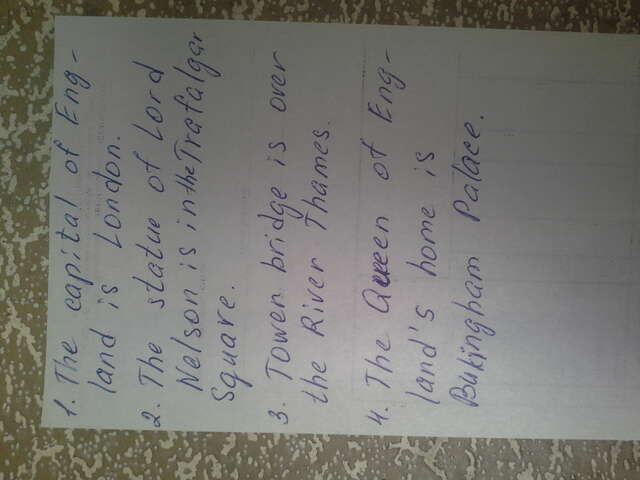 1. The capital of Eng-
land is London.
2. The statue of Lord
Nelson is in the Trafalgar
Square.
3. Tower bridge is over
the River Thames.
4. The Queen of Eng-
land's home is
Bukingham Palace.